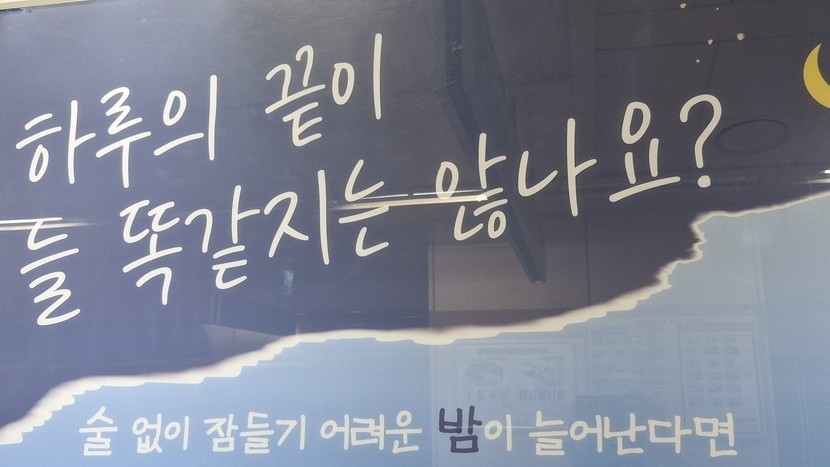 하루의 끝이
늘 똑같지는 않나요?
술 없이 잠들기 어려운 밤이 늘어난다면